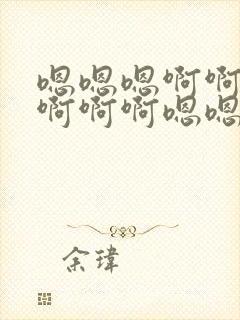 嗯嗯嗯啊啊
啊啊啊嗯嗯
余瑋